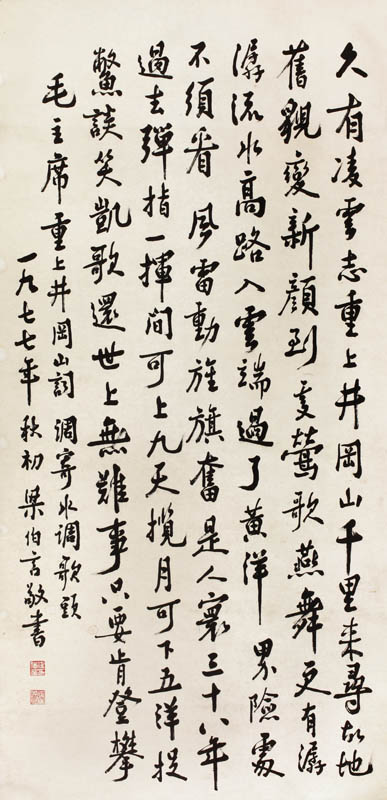 久有凌雲志重上井岡山千里来尋故地
舊貌變新顏到處鶯歌燕舞更有潺
潺流水高路入雲端過了黄洋界險處
不須看風雷動旌旗奮是人寰三十八年
過去彈指一揮間可上九天攬月可下五洋捉
鱉談笑凱歌還世上無難事只要肯登攀
毛主席重上井岡山詞調寄水调歌頭
一九七七年秋初梁伯言敬書